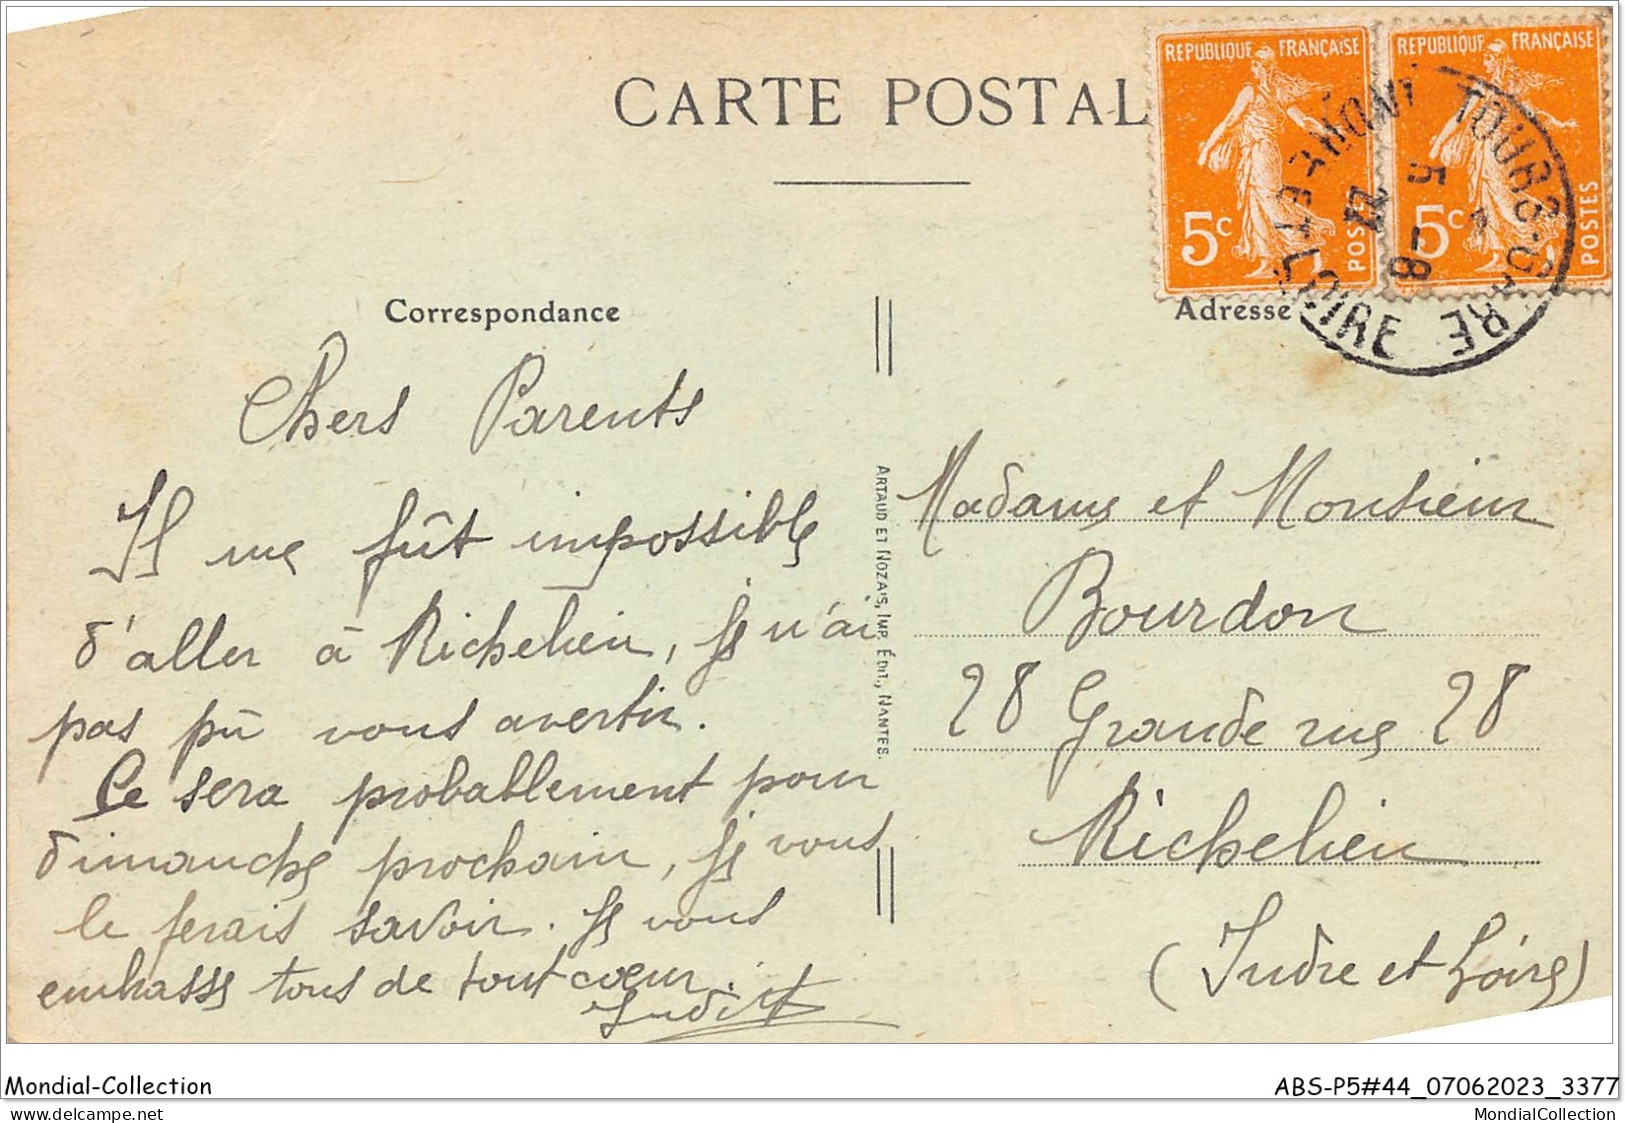 CARTE POSTAL
REPUBLIQUE FRANÇAISE
5c
POSTES
REPUBLIQUE FRANÇAISE
5c
POSTES
TOURS-GARE
INDRE-ET-LOIRE
5 -8
22
Correspondance
Adresse
Chers Parents
Il me fût impossible
d'aller à Richelieu, je n'ai
pas pû vous avertir.
Ce sera probablement pour
dimanche prochain, je vous
le ferais savoir. Je vous
embrasse tous de tout cœur.
Judith
ARTAUD ET NOZAIS, IMP. ÉDIT., NANTES.
Madame et Monsieur
Bourdon
28 Grande rue 28
Richelieu
(Indre et Loire)
Mondial-Collection
ABS-P5#44_07062023_3377
delcampe.net
MondialCollection